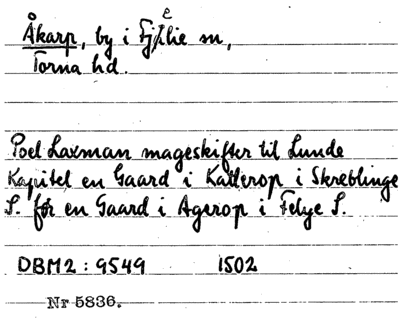 Åkarp, by i Fjelie sn,
Torna hd.
Poel Laxman mageskifter til Lunde
Kapitel en Gaard i Katterop i Skreblinge
S. før en Gaard i Agerop i Felye S.
DBM2: 9549 1502
Nr 5836.